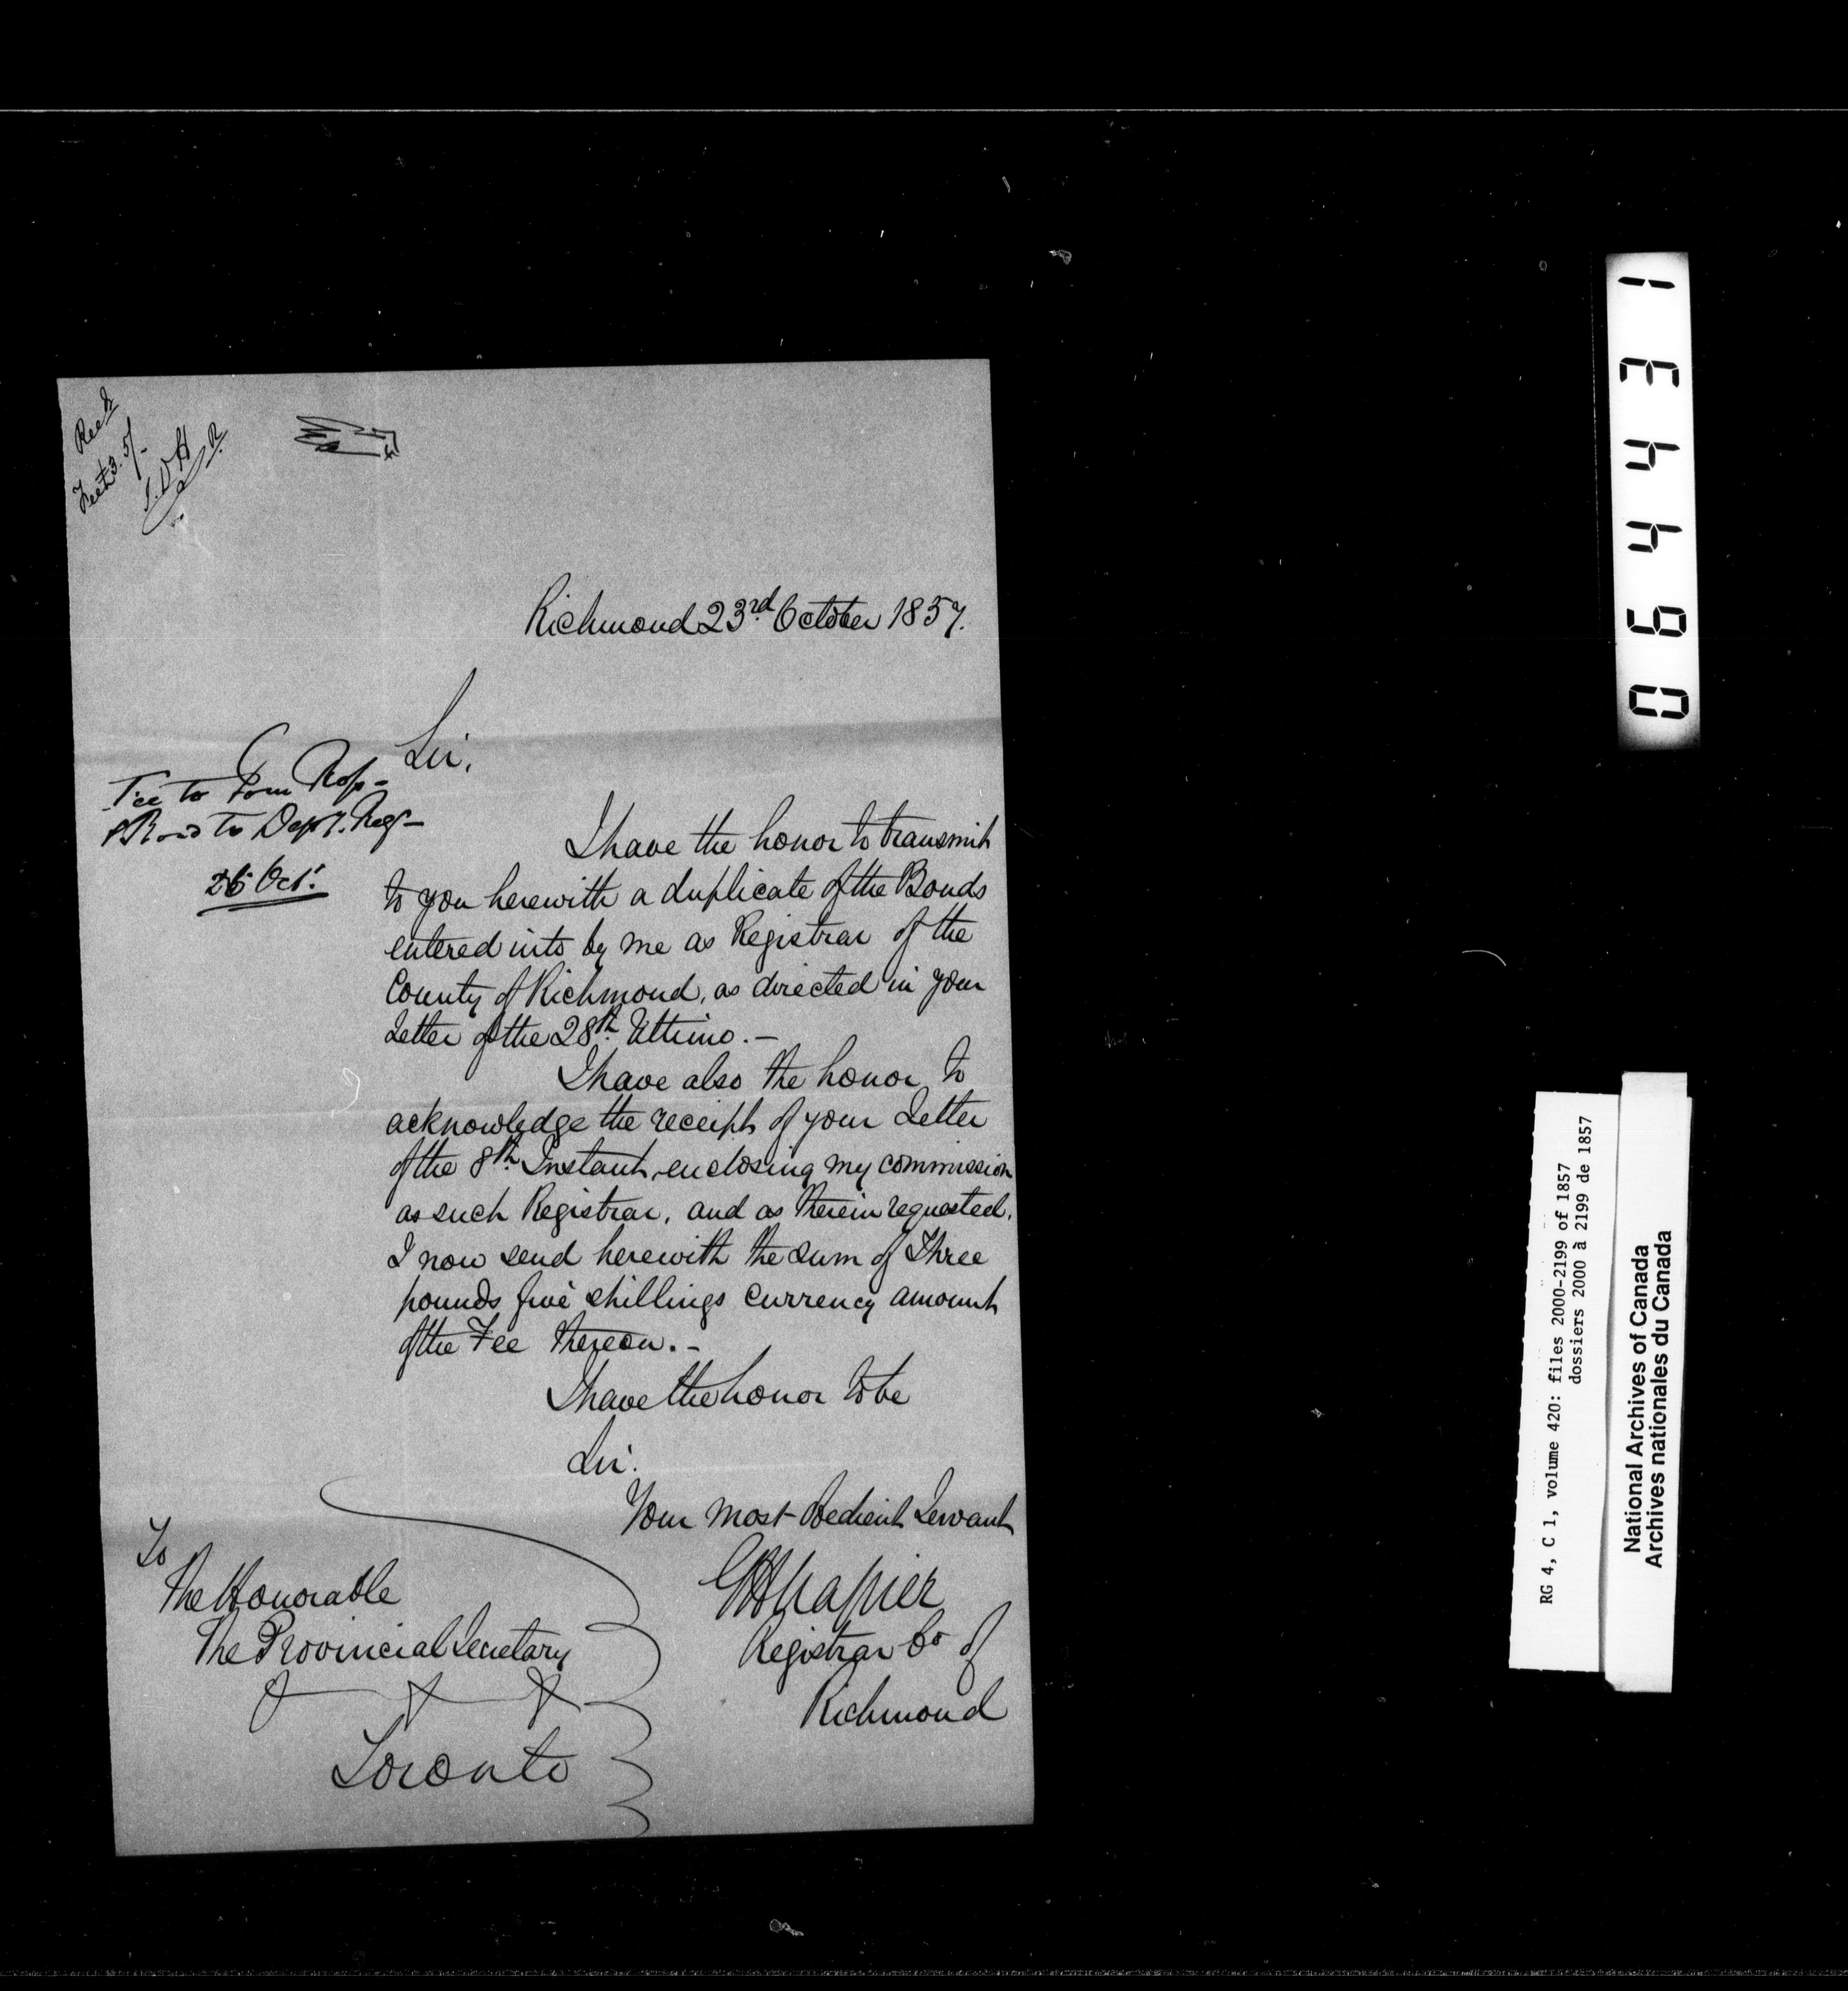 Rec'd
Fee £3. 5/-
Richmond 23rd October 1857.
Sir,
Fee to
Bond to Depy. Reg-
26 Oct.
I have the honor to transmit
to you herewith a duplicate of the Bonds
entered into by me as Registrar of the
County of Richmond, as directed in your
Letter of the 28th Ultimo. -
I have also the honor to
acknowledge the receipt of your Letter
of the 8th Instant, enclosing my commission
as such Registrar, and as therein requested,
I now send herewith the sum of Three
pounds five shillings currency amount
of the Fee thereon. -
I have the honor to be
Sir.
Your most Obedient Servant
G H Napier
Registrar Co of
Richmond
To
The Honorable
The Provincial Secretary
Toronto
094431
RG 4, C 1, volume 420: files 2000-2199 of 1857
dossiers 2000 à 2199 de 1857
National Archives of Canada
Archives nationales du Canada